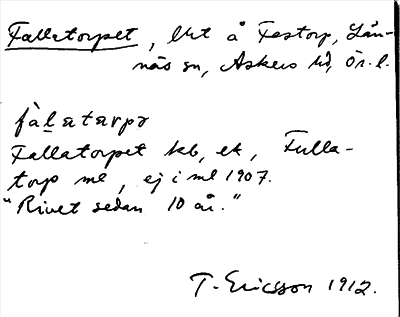 Fallatorpet, lht å Festorp, Lån-
näs sn, Askers hd, Ör. l.
fàlatarpə
Fallatorpet kb, ek, Fulla-
torp ml, ej i ml 1907.
"Rivet sedan 10 år."
T. Ericsson 1912.